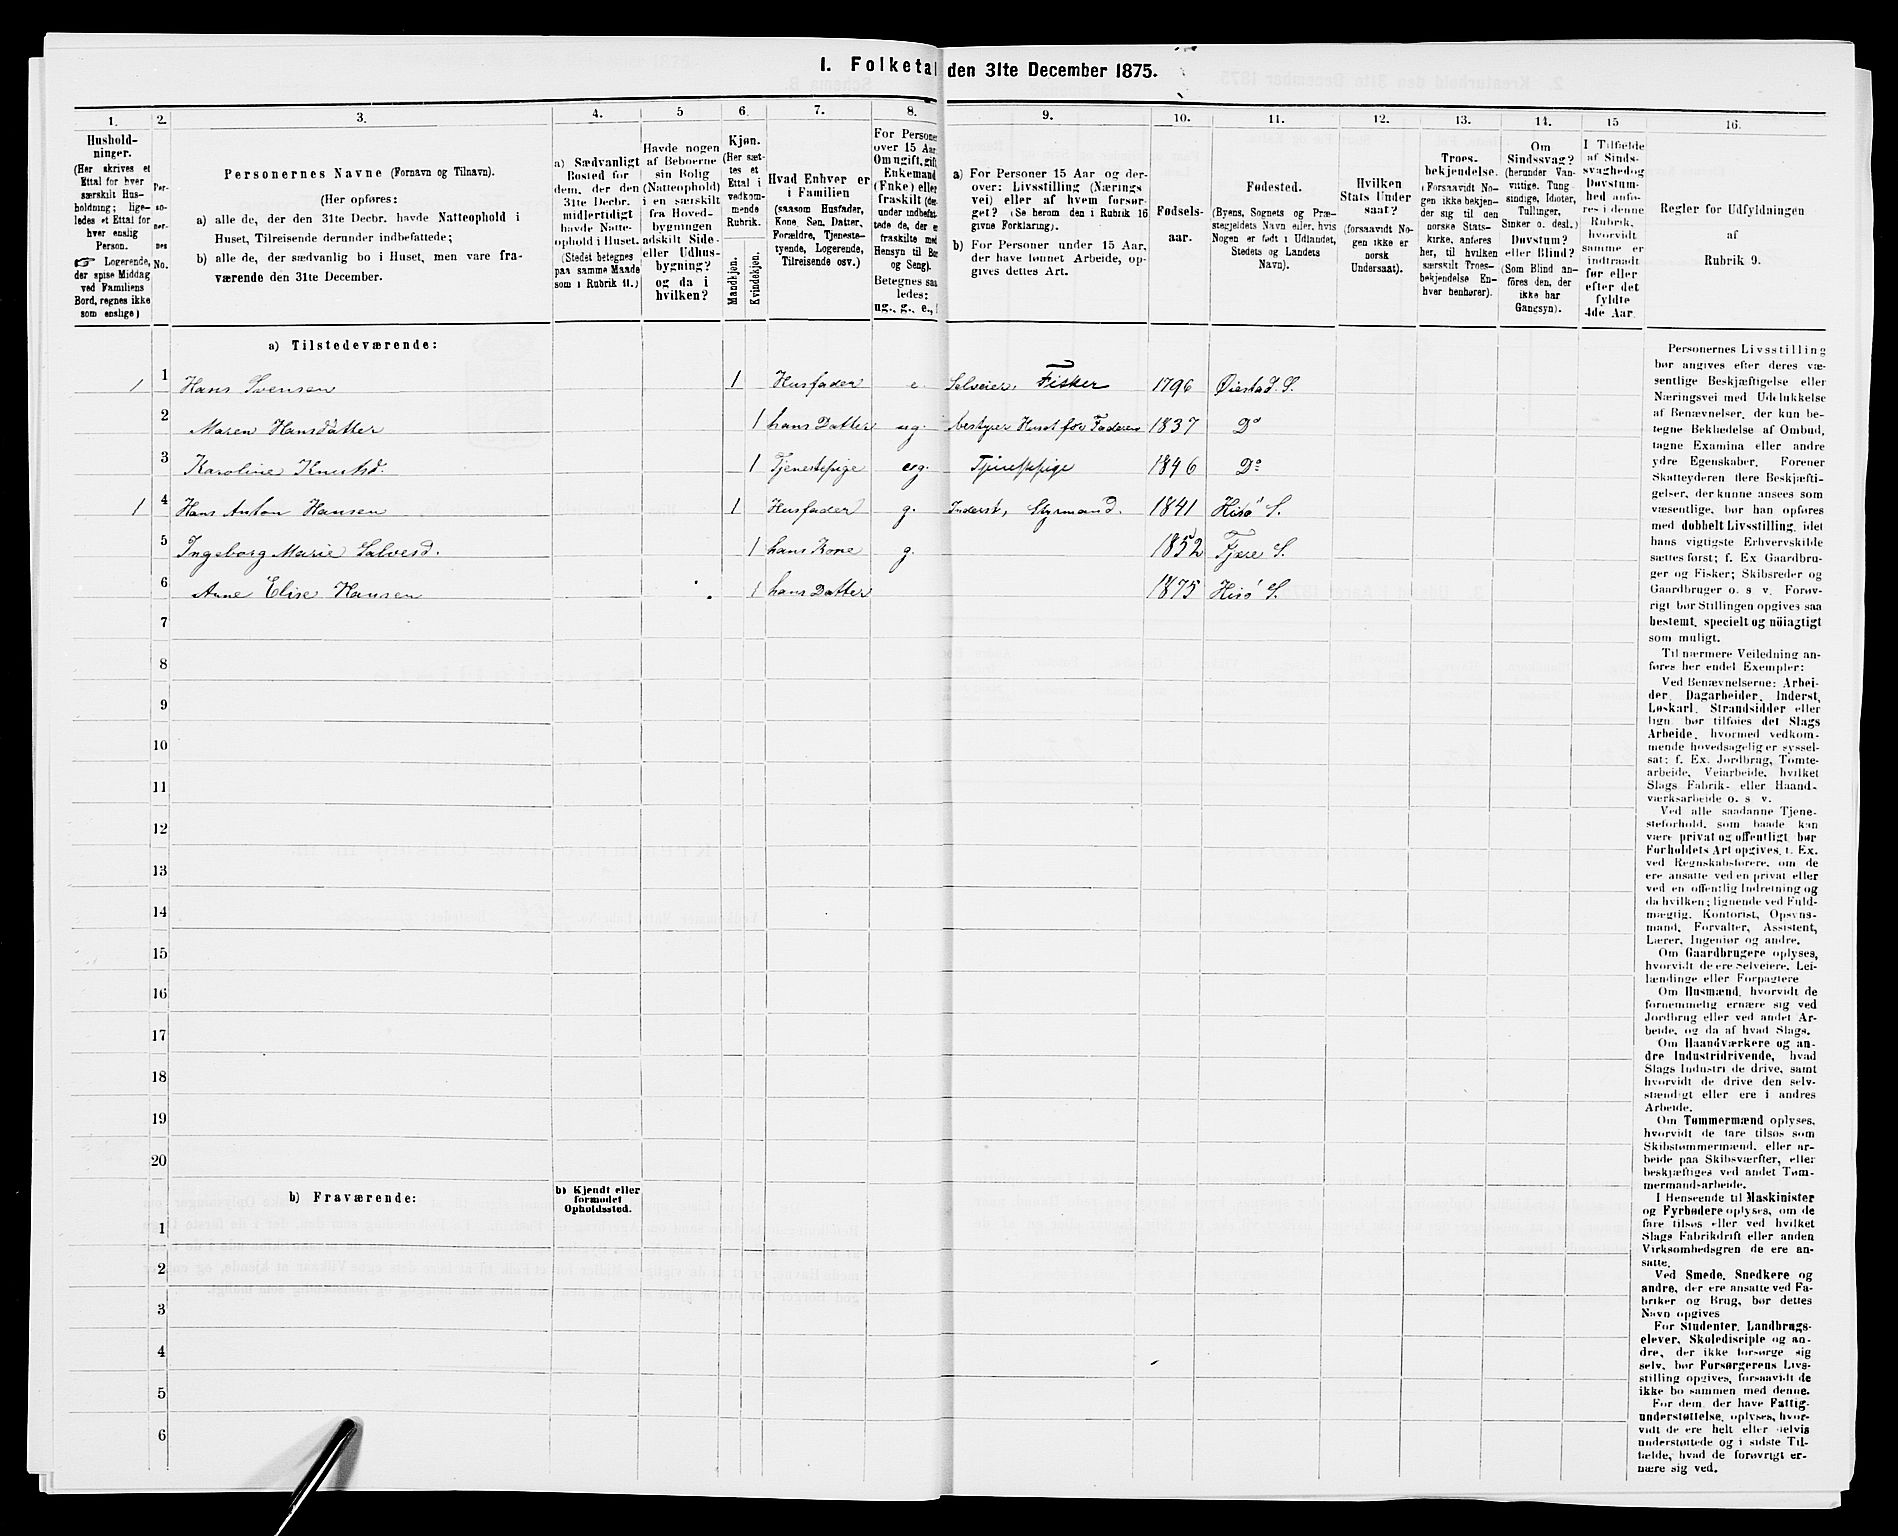 1. Folketal den 31te December 1875.
1. 2. 3. 4. 5 6. 7. 8. 9. 10. 11. 12. 13. 14. 15 16.
Hushold-
ninger.
(Her skrives et
Ettal for hver
særskilt Hus-
holdning; lige-
ledes et Ettal for
hver enslig
Person.
☞ Logerende,
der spise Middag
ved Familiens
Bord, regnes ikke
som enslige)
Per-
so-
ner-
nes
No.
Personernes Navne (Fornavn og Tilnavn).
(Her opføres:
a) alle de, der den 31te Decbr. havde Natteophold i
Huset, Tilreisende derunder indbefattede;
b) alle de, der sædvanlig bo i Huset, men vare fra-
værende den 31te December.
a) Sædvanligt
Bosted for
dem, der den
31te Decbr.
midlertidigt
havde Natte-
ophold i Huset.
(Stedet betegnes
paa samme Maade
som i Rubrik 11.)
Havde nogen
af Beboerne
sin Bolig
(Natteophold)
i en særskilt
fra Hoved-
bygningen
adskilt Side-
eller Udhus-
bygning?
og da i
hvilken?
Kjøn.
(Her sæt-
tes et
Ettal i
vedkom-
mende
Rubrik.
Mandkjøn.
Kvindekjøn.
Hvad Enhver er
i Familien
(saasom Husfader,
Kone, Søn, Datter,
Forældre, Tjeneste-
tyende, Logerende,
Tilreisende osv.)
For Personer
over 15 Aar
Om ugift, gift,
Enkemand
(Enke) eller
fraskilt (der-
under indbefat-
tede de, der e
fraskilte med
Hensyn til Bo
og Seng).
Betegnes saa-
ledes:
ug., g., e., f
a) For Personer 15 Aar og der-
over: Livsstilling (Nærings
vei) eller af hvem forsør-
get? (Se herom den i Rubrik 16
givne Forklaring).
b) For Personer under 15 Aar,
der have lønnet Arbeide, op-
gives dettes Art.
Fødsels-
aar.
Fødested.
(Byens, Sognets og Præ-
stegjeldets Navn eller, hvis
Nogen er født i Udlandet,
Stedets og Landets
Navn).
Hvilken
Stats Under
saat?
(forsaavidt No-
gen ikke er
norsk
Undersaat).
Troes-
bekjendelse.
(Forsaavidt No-
gen ikke bekjen-
der sig til den
norske Stats-
kirke, anføres
her, til hvilken
særskilt Troes-
bekjendelse En-
hver henhører).
Om
Sindssvag?
(herunder Van-
vittige, Tung-
sindige, Idioter,
Tullinger,
Sinker o. desl.)
Døvstum?
eller Blind?
(Som Blind an-
føres den, der
ikke har
Gangsyn).
I Tilfælde
af Sinds-
svaghed og
Døvstum-
hed anfø-
res i denne
Rubrik,
hvorvidt
samme er
indtraadt
før eller
efter det
fyldte
4de Aar.
Regler for Udfyldningen
af
Rubrik 9.
a) Tilstedeværende:
1 1 Hans Svensen 1 Husfader e. Selveier, Fisker 1796 Øiestad S.
2 Maren Hansdatter 1 hans Datter ug. bestyrer Huset for Faderen 1837 Do
3 Karoline Knutsd. 1 Tjenestepige ug. Tjenestepige 1846 Do
1 4 Hans Anton Hansen 1 Husfader g. Inderst, Styrmand. 1841 Hisö S.
5 Ingeborg Marie Salvesd. 1 hans Kone g. 1852 Fjære S.
6 Anne Elise Hansen 1 hans Datter 1875 Hisö S.
7
8
9
10
11
12
13
14
15
16
17
18
19
20
b) Fraværende:
b) Kjendt eller
formodet
Opholdssted.
1
2
3
4
5
6
Personernes Livsstilling
bør angives efter deres væ-
sentlige Beskjæftigelse eller
Næringsvei med Udelukkelse
af Benævnelser, der kun be-
tegne Beklædelse af Ombud,
tagne Examina eller andre
ydre Egenskaber. Forener
Skatteyderen flere Beskjæfti-
gelser, der kunne ansees som
væsentlige, bør han opføres
med dobbelt Livsstilling, idet
hans vigtigste Erhvervskilde
sættes først; f. Ex Gaardbru-
ger og Fisker; Skibsreder og
Gaardbruger o. s v. Forøv-
rigt bør Stillingen opgives saa
bestemt, specielt og nöiagtigt
som muligt.
Til nærmere Veiledning an-
føres her endel Exempler:
Ved Benævnelserne: Arbei-
der, Dagarbeider, Inderst,
Løskarl, Strandsidder eller
lign. bør tilføies det Slags
Arbeide, hvormed vedkom-
mende hovedsagelig er syssel-
sat; f. Ex. Jordbrug, Tomte-
arbeide, Veiarbeide, hvilket
Slags Fabrik- eller Haand-
værksarbeide o. s v.
Ved alle saadanne Tjene-
steforhold, som baade kan
være privat og offentligt bør
Forholdets Art opgives, t. Ex.
ved Regnskabsførere, om de
ere ansatte ved en privat eller
ved en offentlig Indretning og
da hvilken; lignende ved Fuld-
mægtig, Kontorist, Opsyns-
mand, Forvalter, Assistent,
Lærer, Ingeniør og andre.
Om Gaardbrugere oplyses,
hvorvidt de ere Selveiere, Lei-
lændinge eller Forpagtere
Om Husmænd, hvorvidt de
fornemmelig ernære sig ved
Jordbrug eller ved andet Ar-
beide, og da af hvad Slags.
Om Haandværkere og an-
dre Industridrivende, hvad
Slags Industri de drive, samt
hvorvidt de drive den selv-
stændigt eller ere i andres
Arbeide.
Om Tømmermænd oplyses,
hvorvidt de fare tilsøs som
Skibstømmermænd, eller ar-
beide paa Skibsværfter, eller
beskjæftiges ved andet Tøm-
mermand-arbeide.
I Henseende til Maskinister
og Fyrbødere oplyses, om de
fare tilsøs eller ved hvilket
Slags Fabrikdrift eller anden
Virksomhedsgren de ere an-
satte.
Ved Smede, Snedkere og
andre, der ere ansatte ved Fa-
briker og Brug, bør dettes
Navn opgives
For Studenter, Landbrugs-
elever, Skoledisciple og an-
dre, der ikke forsørge sig
selv, bør Forsørgerens Livs-
stilling opgives, forsaavidt de
ikke bo sammen med denne.
For dem, der have Fattig-
understøttelse, oplyses, hvor-
vidt de ere helt eller delvis
understøttede og i sidste Til-
fælde, hvad de forøvrigt er-
nære sig ved.